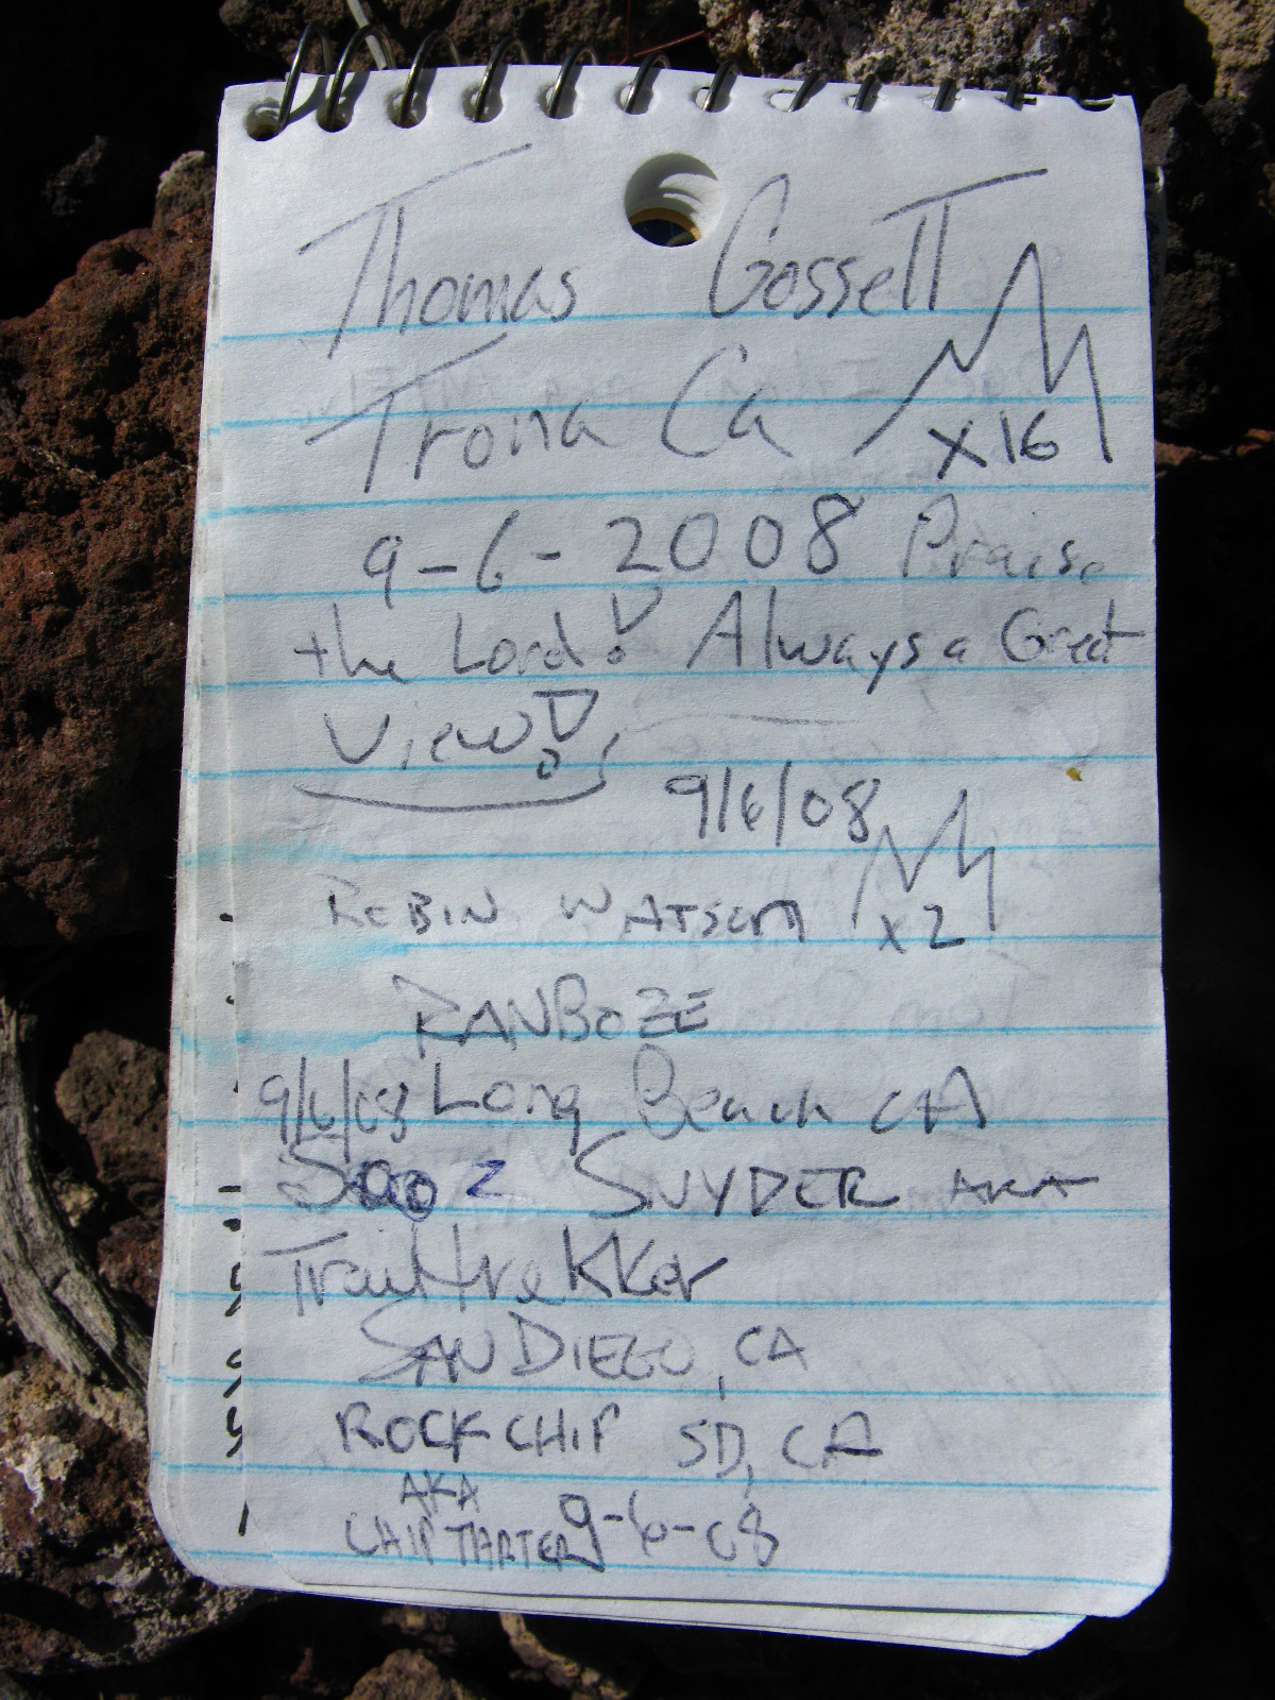 Thomas Gossett
Trona Ca
x16
9-6-2008 Praise
the Lord! Always a Great
View!
9/6/08
ROBIN WATSON
x2
RANBOZE
9/6/08 Long Beach CA
SOOZ SNYDER AKA
Trailtrekker
SAN DIEGO, CA
ROCKCHIP SD, CA
AKA
CHIP TARTER 9-6-08